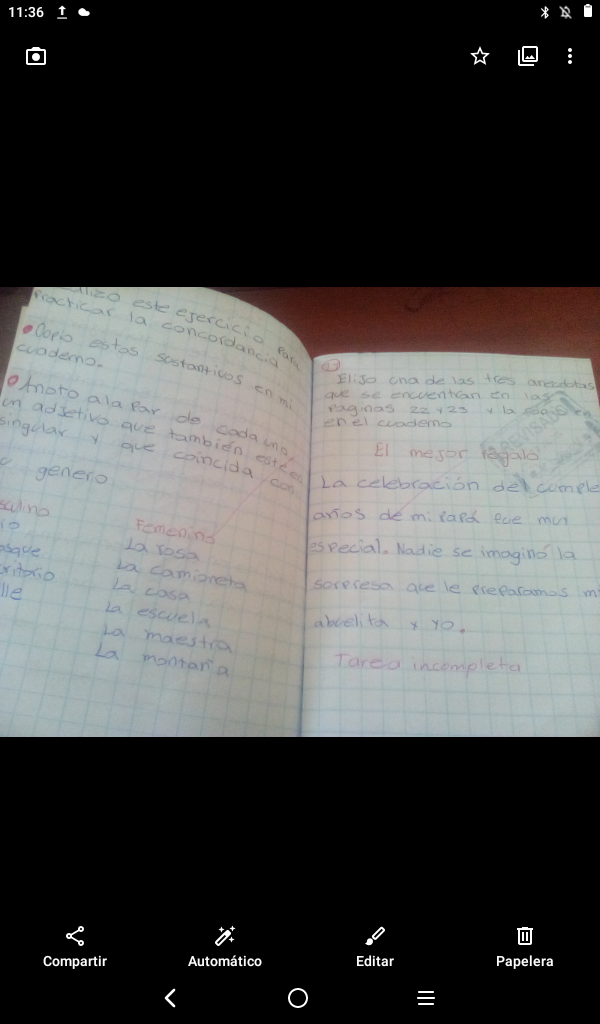 11:36
Realizo este ejercicio para
practicar la concordancia
Copio estos sustantivos en mi
cuaderno.
Anoto a la par de cada uno,
un adjetivo que también esté en
singular y que coincida con
genero
Femenino
La rosa
La camioneta
La casa
La escuela
La maestra
La montaña
Elijo una de las tres anecdotas
que se encuentran en las
Paginas 22 y 23 y la
en el cuaderno
El mejor regalo
La celebración del cumple
años de mi Papá fue muy
especial. Nadie se imaginó la
sorpresa que le preparamos mi
abuelita y yo.
Tarea incompleta
Compartir
Automático
Editar
Papelera